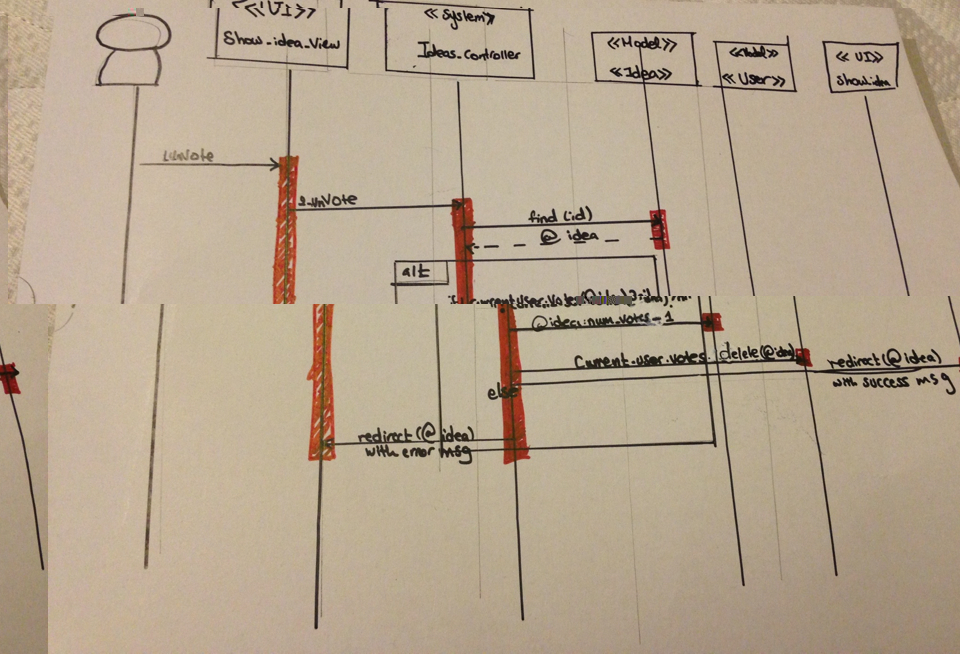 <<UI>>
Show_idea_View
<<System>>
Ideas_Controller
<<Model>>
<<Idea>>
<<Model>>
<<User>>
<<UI>>
Show_idea
1.UnVote
2.UnVote
find (id)
@ idea
alt
@idea.num_votes - 1
Current_user.votes. delete(@idea)
redirect(@idea)
with success msg
else
redirect(@ idea)
with error msg